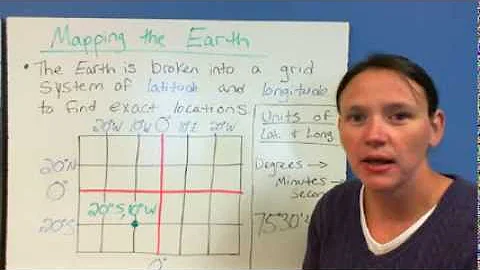 Mapping the Earth
• The Earth is broken into a grid
system of latitude and longitude
to find exact locations.
20°W 10°W 0° 10°E 20°W
Units of
Lat. & Long
20°N
0°
20°S
20°S, 10°W
0°
Degrees →
Minutes →
75°30'